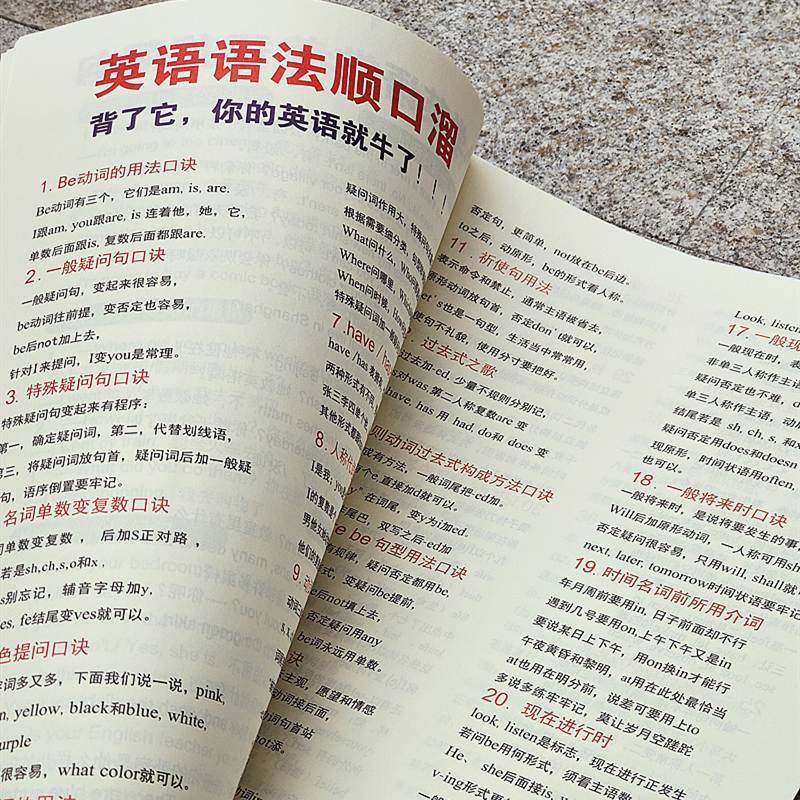 英语语法顺口溜
背了它，你的英语就牛了！！！
1. Be动词的用法口诀
Be动词有三个，它们是am, is, are.
I跟am, you跟are, is 连着他，她，它，
单数后面跟is, 复数后面都跟are.
2. 一般疑问句口诀
一般疑问句，变起来很容易，
be动词往前提，变否定也容易，
be后not加上去，
针对I来提问，I变you是常理。
3. 特殊疑问句口诀
特殊疑问句变起来有程序：
第一，确定疑问词，第二，代替划线语，
第三，将疑问词放句首，疑问词后加一般疑
句，语序倒置要牢记。
名词单数变复数口诀
词单数变复数，后加S正对路，
若是sh,ch,s,o和x，
es别忘记，辅音字母加y,
es, fe结尾变ves就可以。
色提问口诀
词多又多，下面我们说一说, pink,
n, yellow, black和blue, white,
urple
很容易，what color就可以。
的用法
疑问词作用大，特殊
根据需要细分类，
What问什么，
Where问哪里，
When问时候，
特殊疑问词加一
7. have / has
have / has
两种形式
张三李四
其他形式都
8. 人称代
I是我，you
I的复数
男他
他们的
9.
动词
否定句，更简单，not放在be后边。
to之后，动原形，be的形式看人称。
11. 祈使句用法
表示命令和禁止，通常主语被省去，
原形动词放句首，否定don't就可以，
et's也是一句型，生活当中常常用，
使句不礼貌，使用分寸要把好。
过去式之歌
过去加-ed, 少量不规则分别记，
s对was 第二人称复数are 变
have, has 用 had, do和 does 变
则动词过去式构成方法口诀
成有方法，一般词尾把-ed加。
个e,直接加d就可以。
在词尾，变y为i加ed.
尾巴，双写之后-ed加
re be 句型用法口诀
有规律，疑问否定都用be,
式，变疑问be提前，
be后not填上去，
否定疑问用any
be词永远用单数。
诀
主观，愿望和情感
动词接后面，
动词句首站
not添。
Look, listen
17. 一般现
一般现在时，表
非单三人称作主语
疑问否定也不难，
单三人称作主语，动
结尾若是 sh, ch, s, 和
疑问否定用does和doesn
现原形，时间状语用often,
也可以。
18. 一般将来时口诀
一般将来时，是说将要发生的事
Will后加原形动词，一人称可用sh
否定疑问很容易，只用will, shall就
next, later, tomorrow时间状语要牢记
19. 时间名词前所用介词
年月周前要用in, 日子前面却不行
遇到几号要用on,上午下午又是in
要说某日上下午，用on换in才能行
午夜黄昏和黎明，at用在此处最恰当
at也用在明分前，说差可要用上to
多说多练牢牢记，莫让岁月空蹉跎
20. 现在进行时
look, listen是标志，现在进行正发生
若问be用何形式，须看主语数
He、 she后面接is,
v-ing形式更